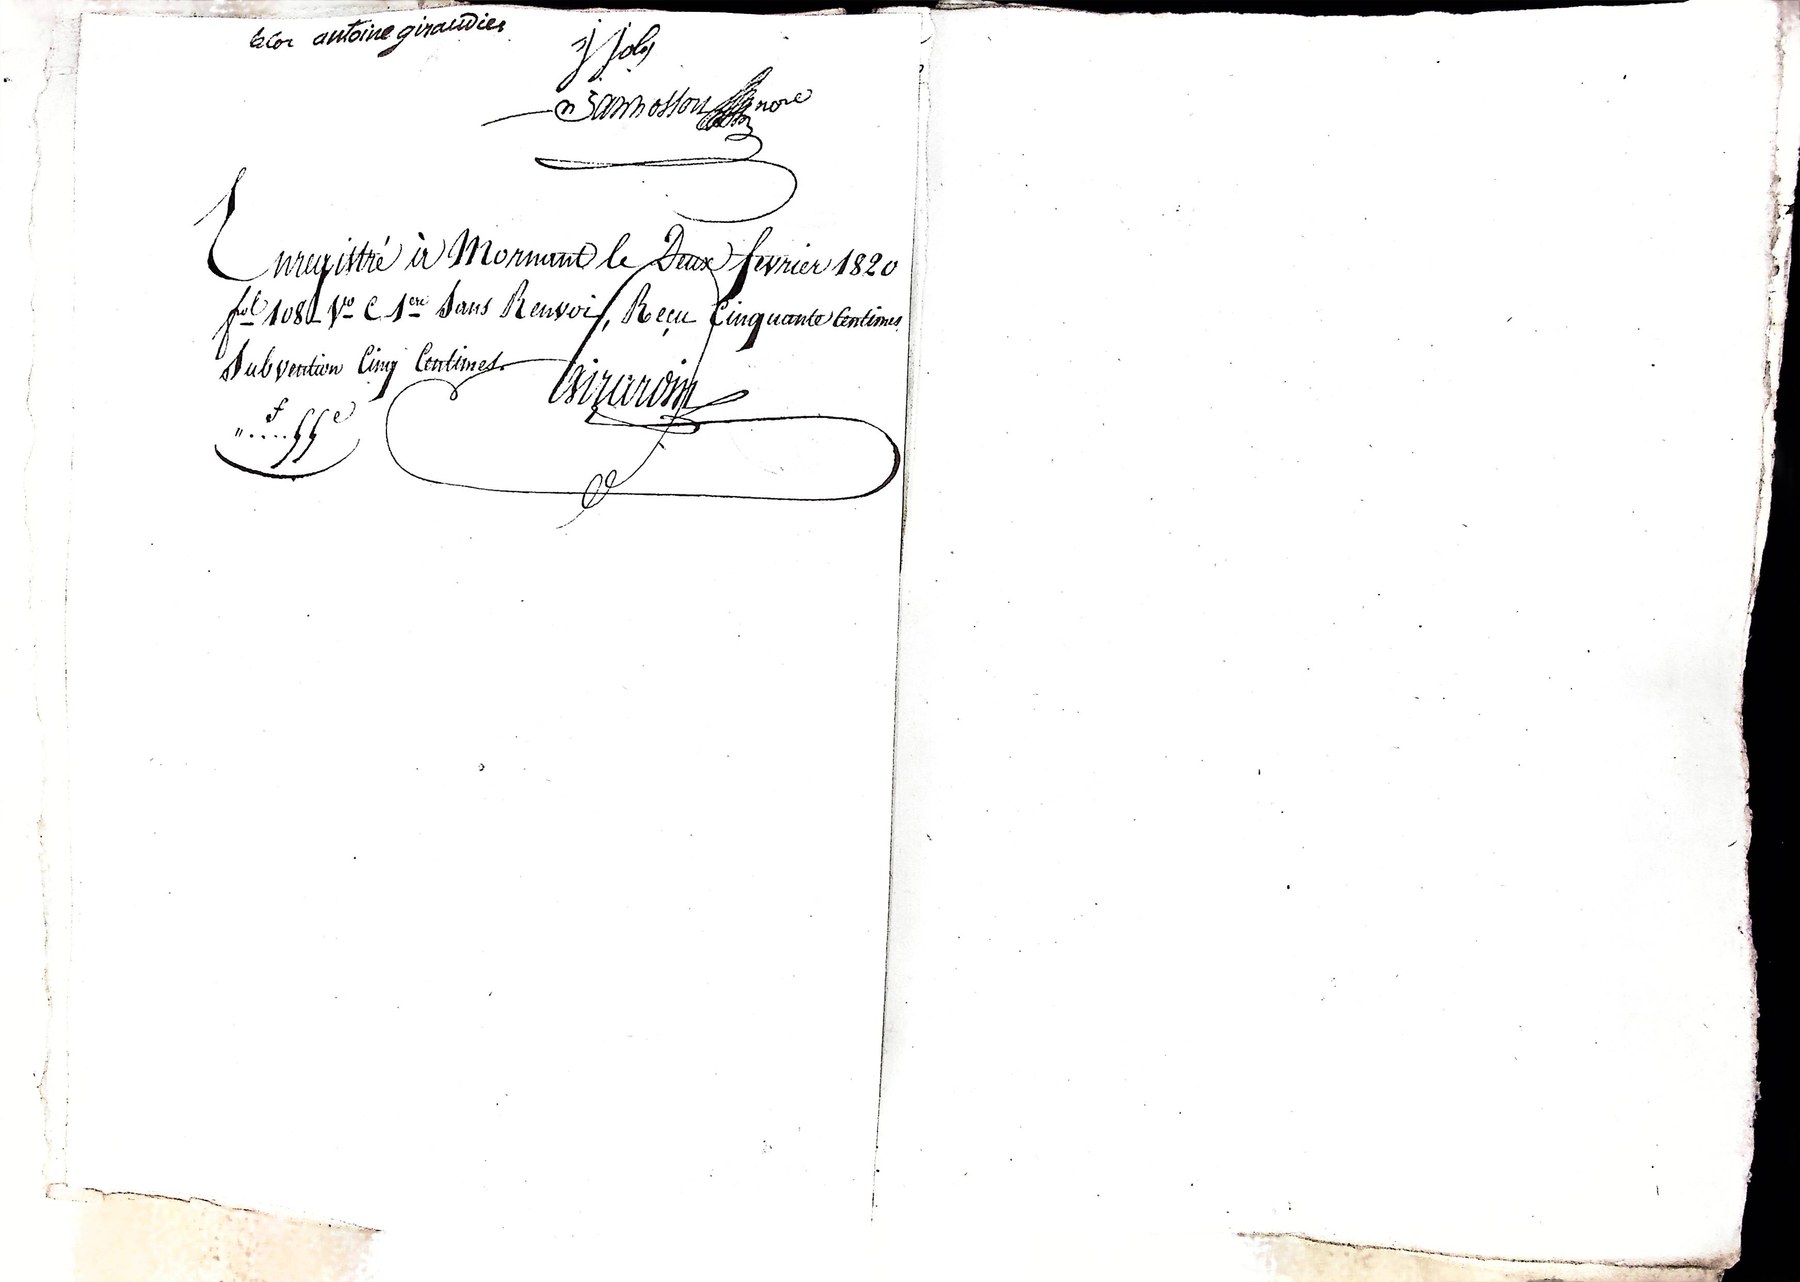 antoine giraudier
j joly
nore
Enregistré à Mornant le Deux fevrier 1820
fol 108 Vo C 1ere Sans Renvoi, Reçu Cinquante Centimes
Subvention Cinq Centimes.
Girardin
f
" .... 55 c